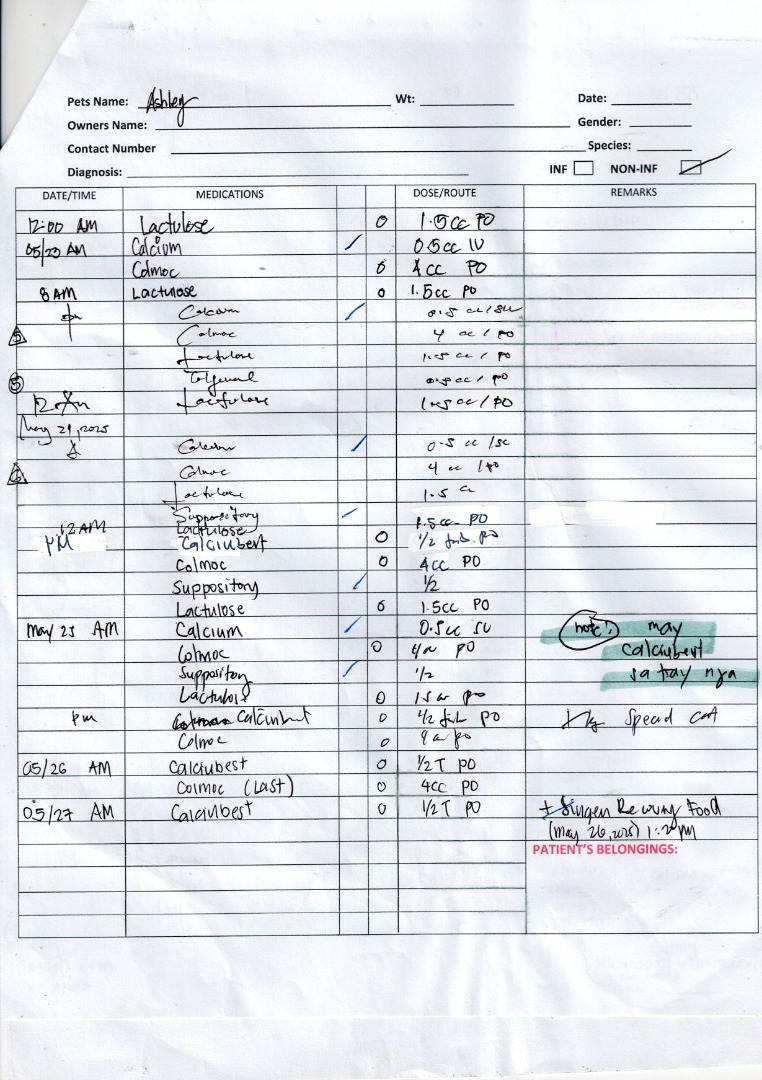 Pets Name: Ashley Wt: Date:
Owners Name: Gender:
Contact Number Species:
Diagnosis: INF NON-INF
DATE/TIME MEDICATIONS DOSE/ROUTE REMARKS
12:00 AM Lactulose O 1.5cc PO
05/23 AM Calcium 0.5cc IV
Colmoc O 4cc PO
8 AM Lactulose O 1.5cc PO
Calcium
5 Colmoc 4 cc / PO
Lactulose 1.5 cc / PO
5 0.5 cc / PO
Lactulose 1.5 cc / PO
May 24, 2025
Calcium 0.5 cc /sc
Colmoc 4 cc / PO
Lactulose 1.5
Suppository
12 AM Lactulose 1.5cc PO
PM Calciubest O 1/2 tab. po
Colmoc O 4cc PO
Suppository 1/2
Lactulose O 1.5cc PO
May 25 AM Calcium 0.5cc note! may
Colmoc O PO Calciubest
Suppository 1/2 sa tray nya
Lactulose O po
pm Calciubest O 1/2 tab PO 1kg Special Cat
Colmoc O po
05/26 AM Calciubest O 1/2 T PO
Colmoc (Last) O 4cc PO
05/27 AM Calciubest O 1/2 T PO + Food
(May 26, 2025)
PATIENT'S BELONGINGS: